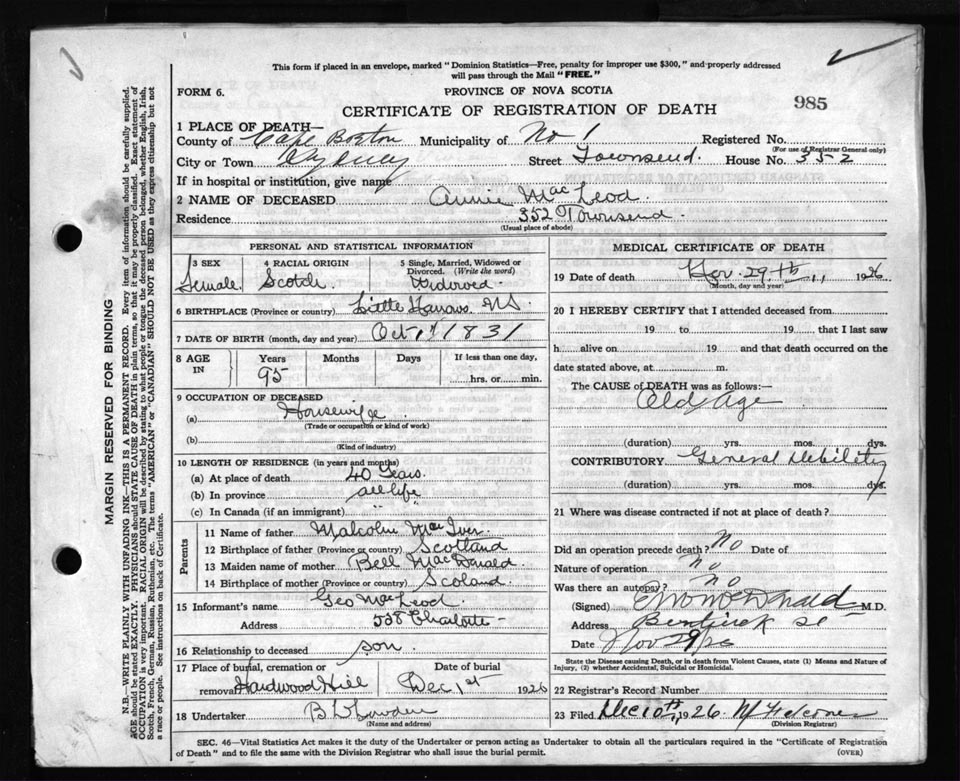 This form if placed in an envelope, marked "Dominion Statistics—Free, penalty for improper use $300," and properly addressed
will pass through the Mail "FREE."
FORM 6.
PROVINCE OF NOVA SCOTIA
CERTIFICATE OF REGISTRATION OF DEATH
985
1 PLACE OF DEATH—
County of Cape Breton Municipality of No 1 Registered No.
(For use of Registrar General only)
City or Town Sydney Street Townsend. House No. 352
If in hospital or institution, give name
2 NAME OF DECEASED Annie MacLeod
Residence 352 Townsend.
(Usual place of abode)
MARGIN RESERVED FOR BINDING
N.B.—WRITE PLAINLY WITH UNFADING INK—THIS IS A PERMANENT RECORD. Every item of information should be carefully supplied.
AGE should be stated EXACTLY. PHYSICIANS should STATE CAUSE OF DEATH in plain terms, so that it may be properly classified. Exact statement of
OCCUPATION is very important. RACIAL ORIGIN will be described by stating to what people or tongue the deceased person belonged, whether English, Irish,
Scotch, French, German, Russian, Ruthenian, etc. The terms "AMERICAN" or "CANADIAN" SHOULD NOT BE USED as they express citizenship but not
a race or people. See instructions on back of Certificate.
PERSONAL AND STATISTICAL INFORMATION
3 SEX
Female
4 RACIAL ORIGIN
Scotch
5 Single, Married, Widowed or
Divorced. (Write the word)
Widowed
6 BIRTHPLACE (Province or country) Little Narrows NS
7 DATE OF BIRTH (month, day and year) Oct 1st 1831
8 AGE
IN
Years Months Days If less than one day,
95
hrs. or min.
9 OCCUPATION OF DECEASED
(a) Housewife
(Trade or occupation or kind of work)
(b)
(Kind of industry)
10 LENGTH OF RESIDENCE (in years and months)
(a) At place of death 40 Years
(b) In province all life
(c) In Canada (if an immigrant) " "
Parents
11 Name of father Malcolm MacIver
12 Birthplace of father (Province or country) Scotland
13 Maiden name of mother Bell MacDonald
14 Birthplace of mother (Province or country) Scoland
15 Informant's name Geo MacLeod
Address 558 Charlotte
16 Relationship to deceased son
17 Place of burial, cremation or Date of burial
removal Hardwood Hill Dec 1st 1926
18 Undertaker
(Name and address)
MEDICAL CERTIFICATE OF DEATH
19 Date of death Nov. 29th, 1926
(Month, day and year)
20 I HEREBY CERTIFY that I attended deceased from
19 to 19 , that I last saw
h alive on 19 and that death occurred on the
date stated above, at m.
The CAUSE of DEATH was as follows:—
Old Age
(duration) yrs. mos. dys.
CONTRIBUTORY General Debility
(duration) yrs. mos. dys.
21 Where was disease contracted if not at place of death?
Did an operation precede death? No Date of
Nature of operation No
Was there an autopsy? No
(Signed) McDonald M.D.
Address Bentinck St
Date Nov 29/26
State the Disease causing Death, or in death from Violent Causes, state (1) Means and Nature of
Injury, (2) whether Accidental, Suicidal or Homicidal.
22 Registrar's Record Number
23 Filed Dec 10th, 1926
(Division Registrar)
SEC. 46—Vital Statistics Act makes it the duty of the Undertaker or person acting as Undertaker to obtain all the particulars required in the "Certificate of Registration
of Death" and to file the same with the Division Registrar who shall issue the burial permit. (OVER)